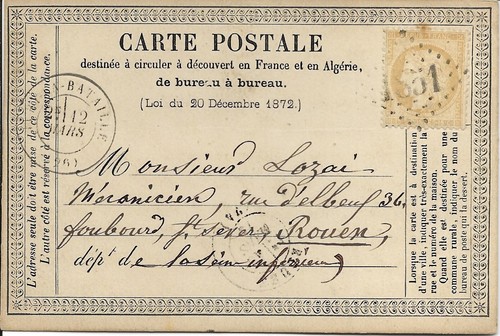 CARTE POSTALE
destinée à circuler à découvert en France et en Algérie,
de bureau à bureau.
(Loi du 20 Décembre 1872.)
L'adresse seule doit être mise de ce côté de la carte.
L'autre côté est réservé à la correspondance.
BATAILLE
12
MARS
Monsieur Lozai
Mecanicien, rue d'elbeuf 36.
foubourd St Sever Rouen
dépt de la Sein inferieur
Lorsque la carte est à destination
d'une ville, indiquer très-exactement la
rue et le numéro de la maison.
Quand elle est destinée pour une
commune rurale, indiquer le nom du
bureau de poste qui la dessert.